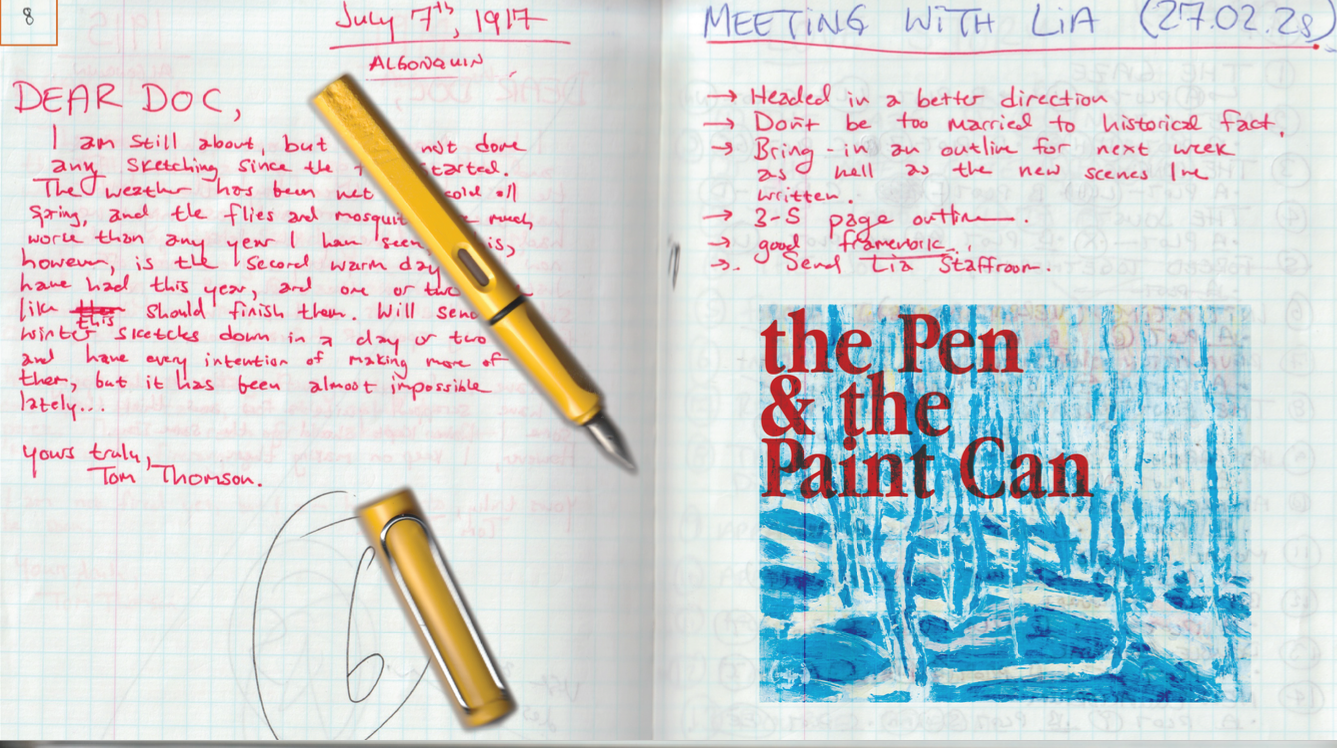 8
July 7th, 1917
ALGONQUIN
DEAR DOC,
I am still about, but not done
any sketching since the started.
The weather has been wet cold all
spring, and the flies and much
worse than any year I have seen, is,
however, is the second warm day
have had this year, and one or two
like this should finish them. Will send
winter sketches down in a day or two
and have every intention of making more of
them, but it has been almost impossible
lately...
yours truly,
Tom Thomson.
6
MEETING WITH LiA
→ Headed in a better direction
→ Don't be too married to historical fact.
→ Bring-in an outline for next week
as well as the new scenes I've
written.
→ 3-5 page outline.
→ good framework.
→ Send Lia Staffroom.
the Pen
& the
Paint Can